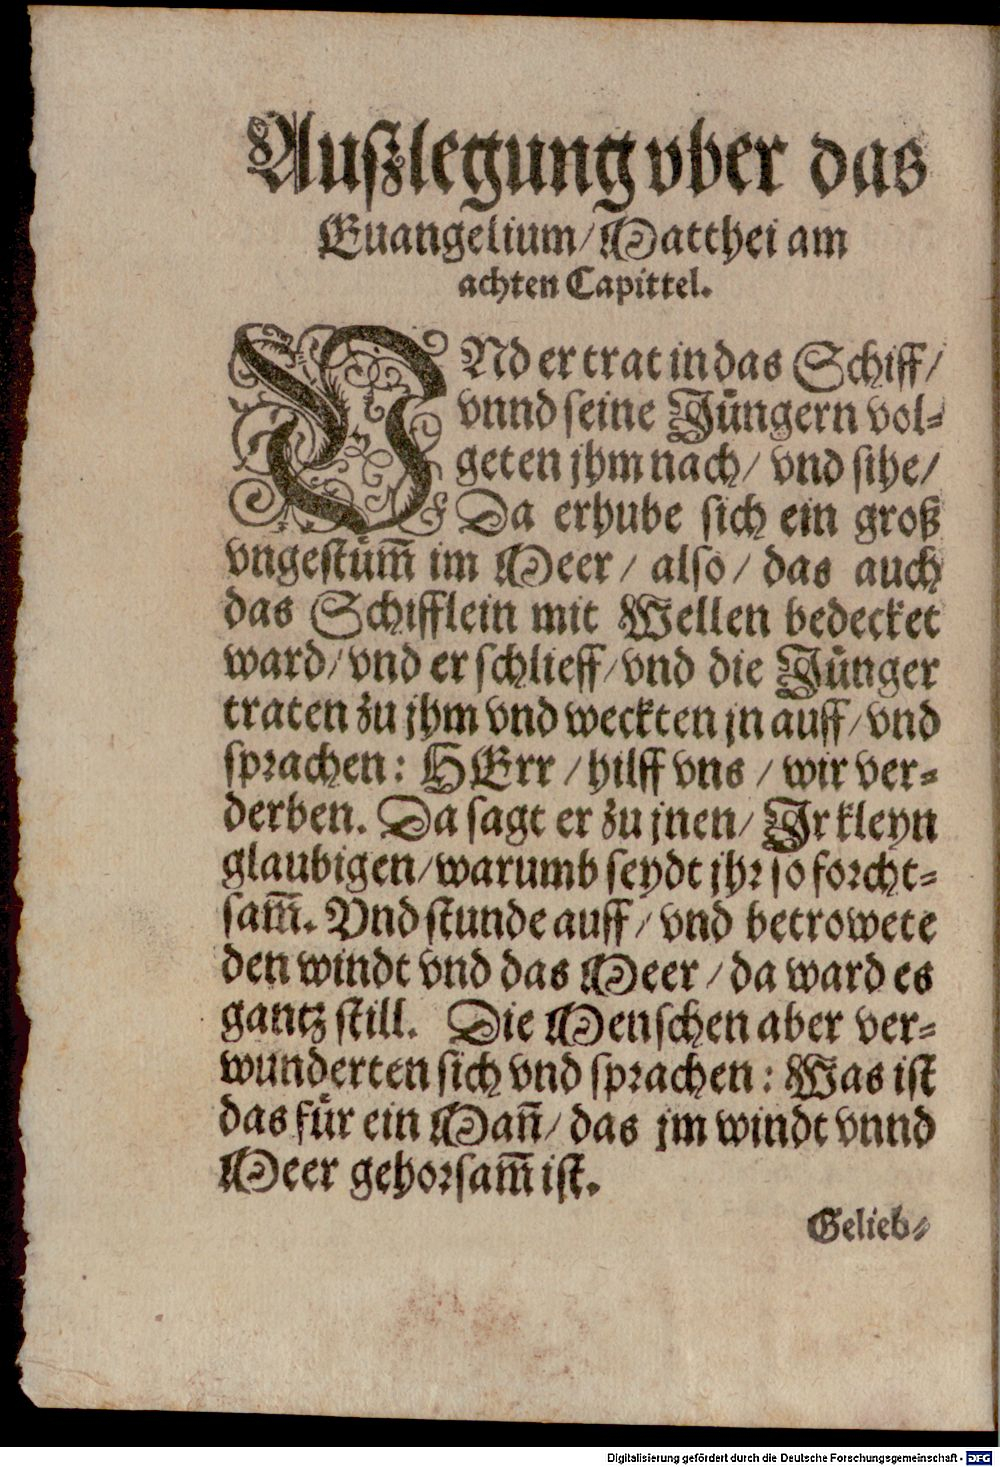 Außlegung vber das
Euangelium/ Matthei am
achten Capittel.
VNd er trat in das Schiff/
vnnd seine Jüngern vol-
geten jhm nach/ vnd sihe/
Da erhube sich ein groß
vngestüm̃ im Meer/ also/ das auch
das Schifflein mit Wellen bedecket
ward/ vnd er schlieff/ vnd die Jünger
traten zu jhm vnd weckten jn auff/ vnd
sprachen: HErr/ hilff vns/ wir ver-
derben. Da sagt er zu jnen/ Jr kleyn
glaubigen/ warumb seydt jhr so forcht-
sam̃. Vnd stunde auff/ vnd betrowete
den windt vnd das Meer/ da ward es
gantz still. Die Menschen aber ver-
wunderten sich vnd sprachen: Was ist
das für ein Mañ/ das jm windt vnnd
Meer gehorsam̃ ist.
Gelieb-
Digitalisierung gefördert durch die Deutsche Forschungsgemeinschaft - DFG